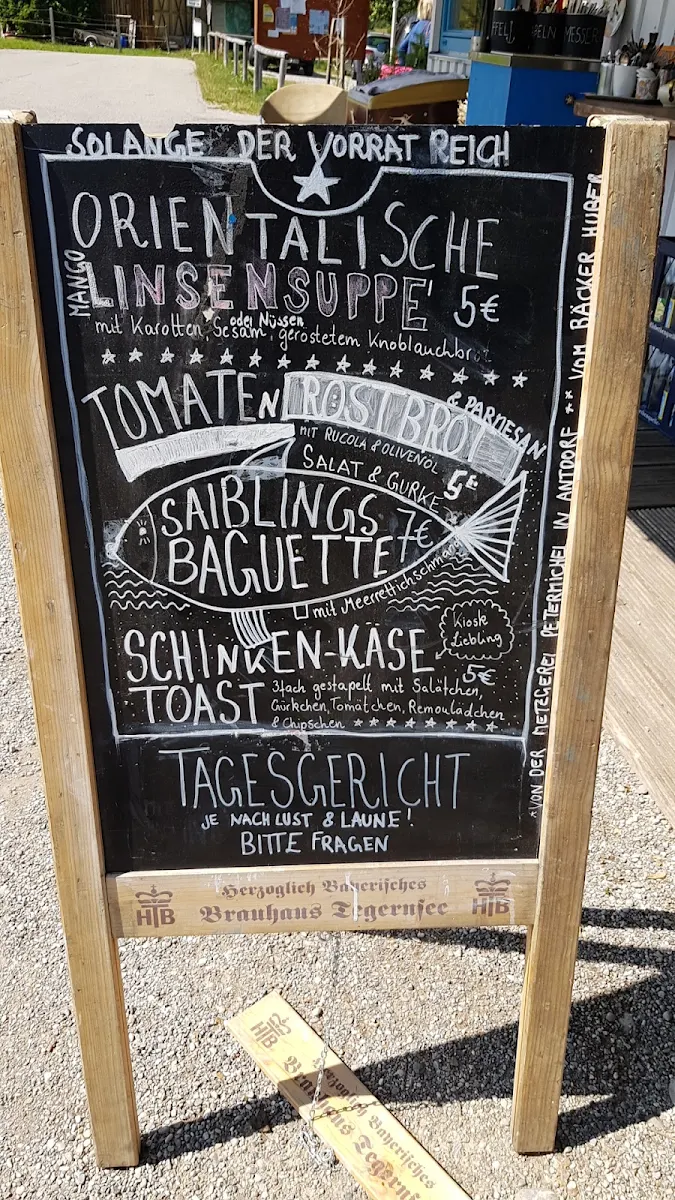 SOLANGE DER VORRAT REICH
ORIENTALISCHE
MANGO
LINSENSUPPE 5€
mit Karotten, Sesam, oder Nüssen geröstetem Knoblauchbrot
TOMATEN RÖSTBROT
& PARMESAN
MIT RUCOLA & OLIVENÖL
SALAT & GURKE 5€
SAIBLINGS
BAGUETTE 7€
mit Meerrettichschmand
SCHINKEN-KÄSE
TOAST
Kiosk
Liebling
5€
3fach gestapelt mit Salätchen,
Gürkchen, Tomätchen, Remoulädchen
& Chipschen
TAGESGERICHT
JE NACH LUST & LAUNE!
BITTE FRAGEN
*VON DER METZGEREI PETERMICHEL IN ANTDORF ** VOM BÄCKER HUBER
HTB Herzoglich Bayerisches HTB
Brauhaus Tegernsee
HTB
Herzoglich Bayerisches
Brauhaus Tegernsee
MESSER